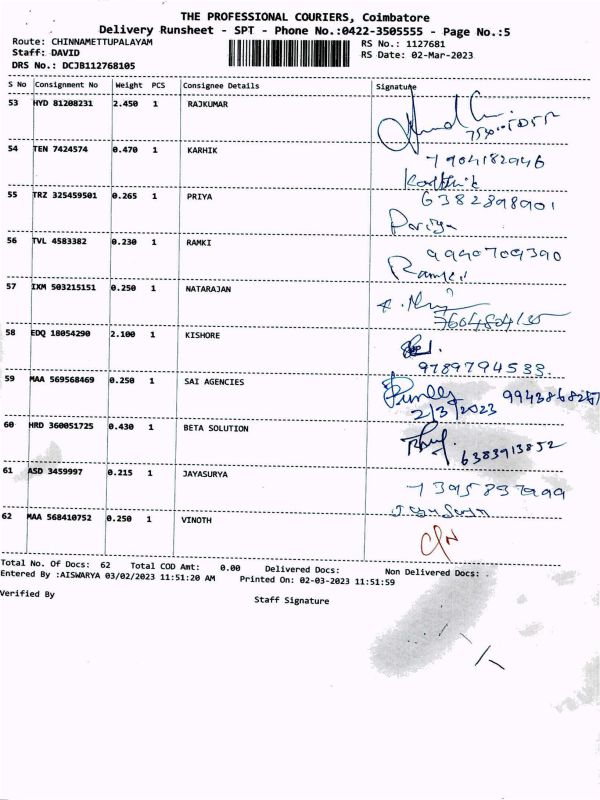 THE PROFESSIONAL COURIERS, Coimbatore
Delivery Runsheet - SPT - Phone No.:0422-3505555 - Page No.:5
Route: CHINNAMETTUPALAYAM
RS No.: 1127681
Staff: DAVID
RS Date: 02-Mar-2023
DRS No.: DCJB112768105
S No Consignment No Weight PCS Consignee Details Signature
53 HYD 81208231 2.450 1 RAJKUMAR
54 TEN 7424574 0.470 1 KARHIK
7904182946
Karthik
55 TRZ 325459501 0.265 1 PRIYA
6382898901
Pariya
56 TVL 4583382 0.230 1 RAMKI
9940709390
Ramki
57 IXM 503215151 0.250 1 NATARAJAN
7604804135
58 EDQ 18054290 2.100 1 KISHORE
9789794533.
59 MAA 569568469 0.250 1 SAI AGENCIES
2/3/2023
60 HRD 360051725 0.430 1 BETA SOLUTION
6383913852
61 ASD 3459997 0.215 1 JAYASURYA
62 MAA 568410752 0.250 1 VINOTH
Total No. Of Docs: 62 Total COD Amt: 0.00 Delivered Docs: Non Delivered Docs:
Entered By :AISWARYA 03/02/2023 11:51:20 AM Printed On: 02-03-2023 11:51:59
Verified By
Staff Signature